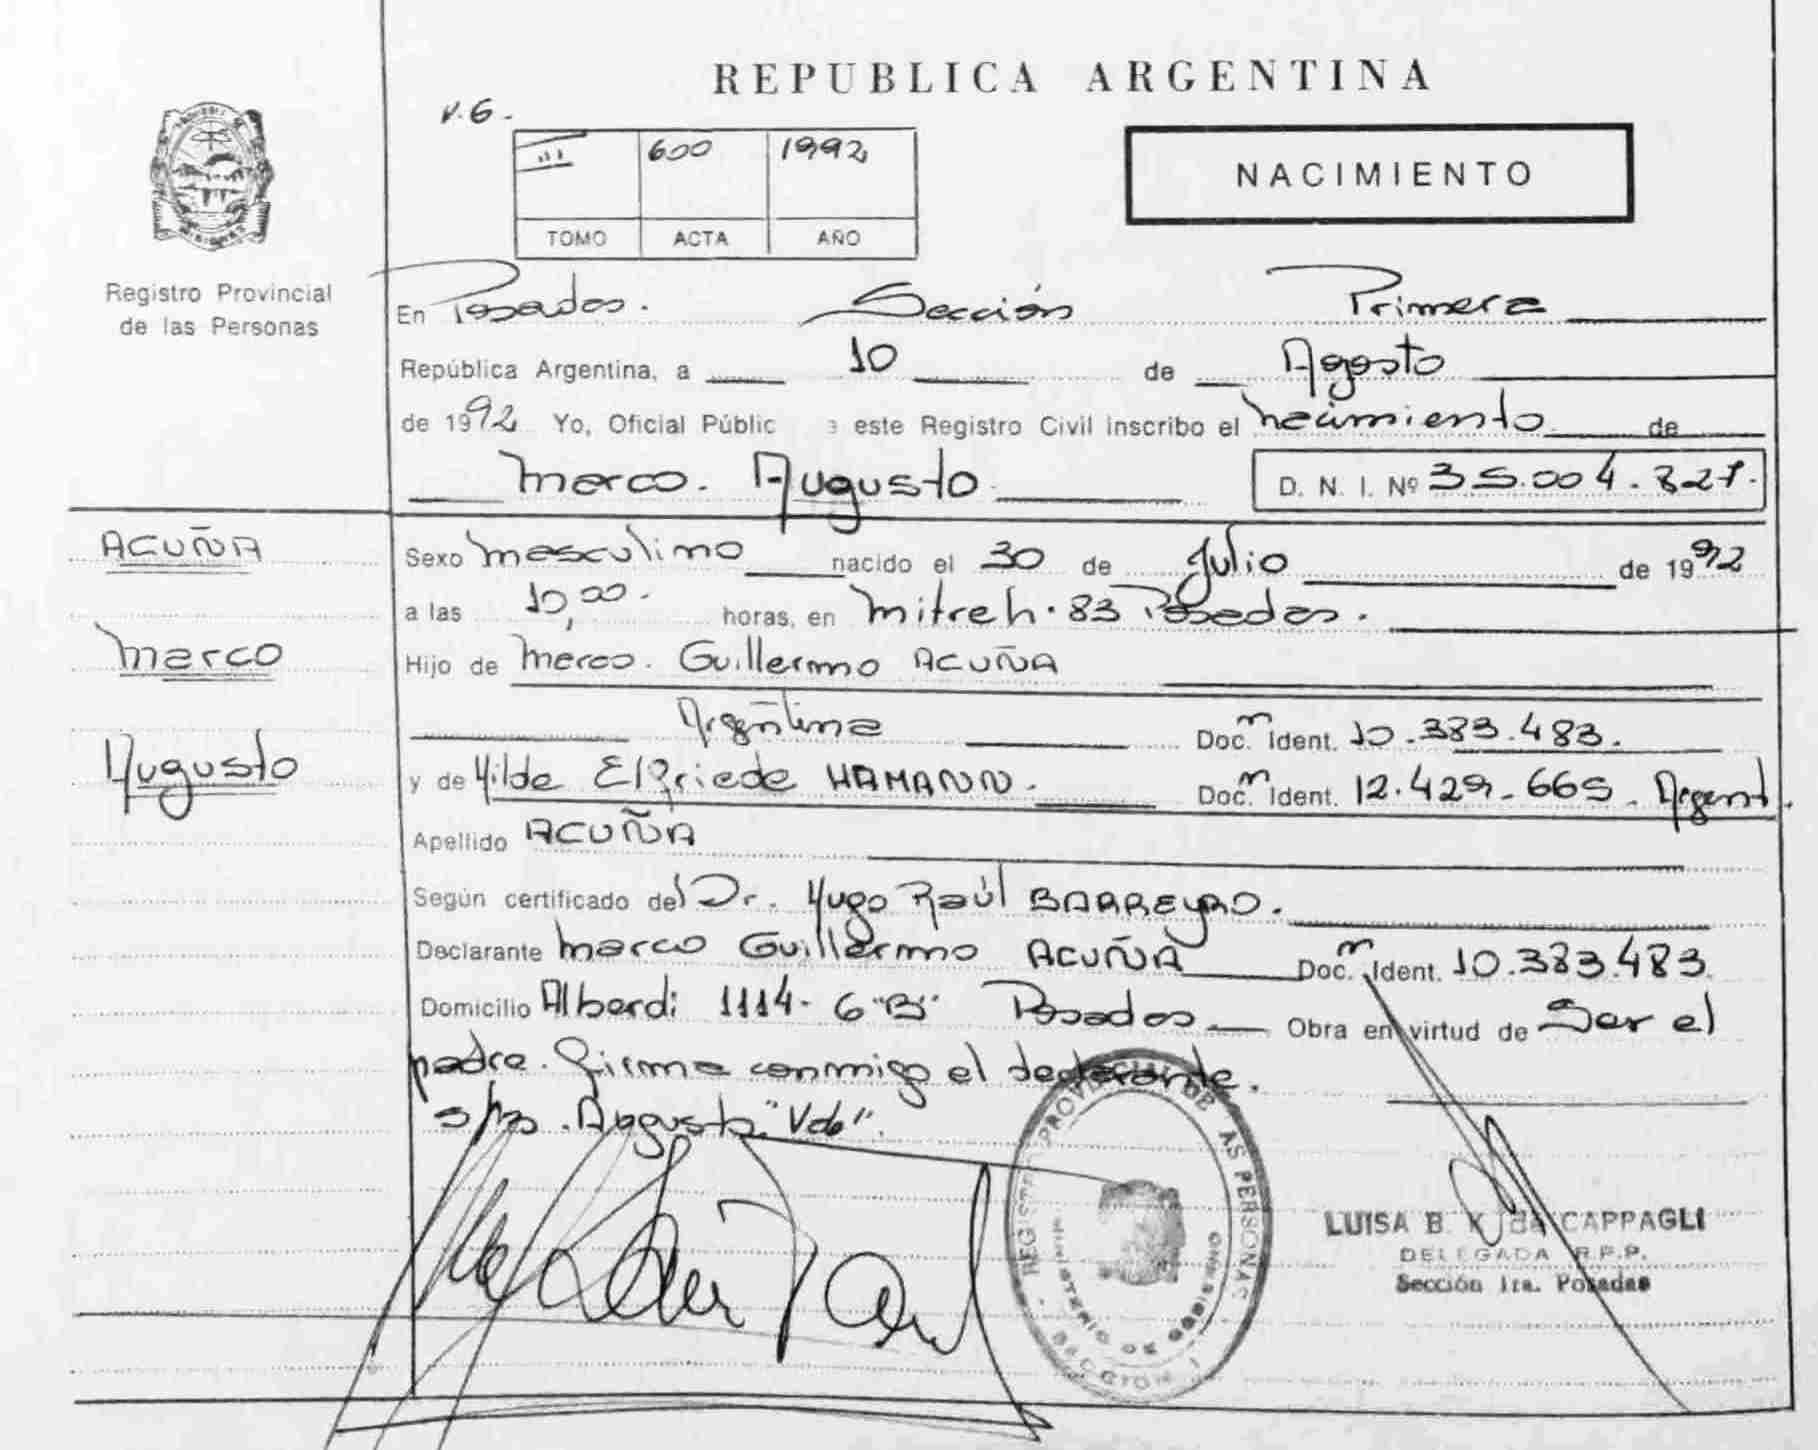 REPUBLICA ARGENTINA
V.G.
III 600 1992
TOMO ACTA AÑO
NACIMIENTO
Registro Provincial
de las Personas
En Posadas. Sección Primera
República Argentina, a 10 de Agosto
de 1992 Yo, Oficial Públic e este Registro Civil inscribo el nacimiento de
Marco. Augusto D. N. I. Nº 35.004.827.
ACUÑA
Marco
Augusto
Sexo masculino nacido el 30 de Julio de 1992
a las 10,00. horas, en Mitre h. 83 Posadas.
Hijo de Marco. Guillermo ACUÑA
Argentina Doc. m Ident. 10.383.483.
y de Hilde Elfriede HAMANN. Doc. m Ident. 12.429.665. Argent.
Apellido ACUÑA
Según certificado del Dr. Hugo Raúl BARREYRO.
Declarante Marco Guillermo ACUÑA Doc. m Ident. 10.383.483.
Domicilio Alberdi 1114- 6 "B" Posadas Obra en virtud de Ser el
padre. Firma conmigo el declarante.
s/rs. Augusto. "Vale".
REGISTRO PROVINCIAL DE LAS PERSONAS
MINISTERIO DE GOBIERNO
SECCION 1
LUISA B. K. de CAPPAGLI
DELEGADA R.P.P.
Sección 1ra. Posadas